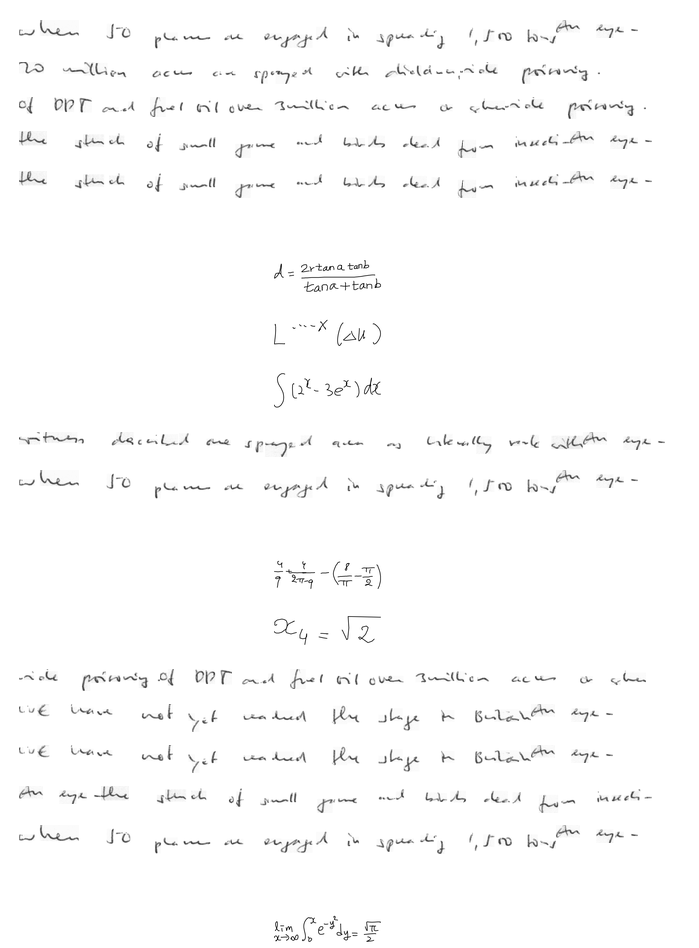 when 50 planes are engaged in spreading 1,500 tons An eye-
20 million acres are sprayed with dieldrin, cide poisoning.
of DDT and fuel oil over 3 million acres a when cide poisoning.
the stench of small game and birds dead from insecti- An eye-
the stench of small game and birds dead from insecti- An eye-
d = \frac{2r tan a tan b}{tan a + tan b}
L ....x (Δu)
∫ (2^x - 3e^x) dx
witness described one sprayed area as literally rank with An eye-
when 50 planes are engaged in spreading 1,500 tons An eye-
\frac{4}{9} + \frac{4}{2π-9} - (\frac{8}{π} - \frac{π}{2})
x_4 = √2
cide poisoning of DDT and fuel oil over 3 million acres a when
we have not yet reached the stage in Britain An eye-
we have not yet reached the stage in Britain An eye-
An eye- the stench of small game and birds dead from insecti-
when 50 planes are engaged in spreading 1,500 tons An eye-
lim_{x→∞} ∫_b^x e^{-y^2} dy = \frac{√π}{2}